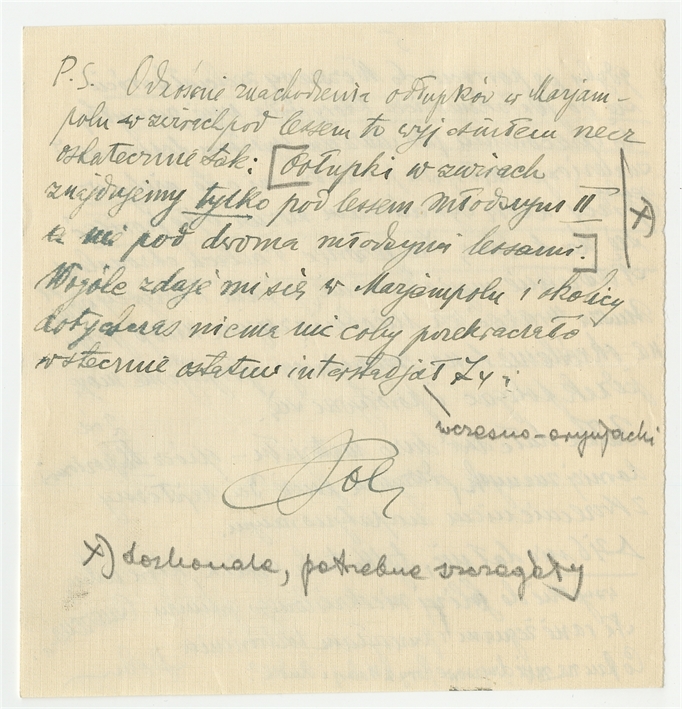 P.S. Odnośnie znachodzenia odłupków w Marjam-
polu w żwirach pod lessem to wyjaśniłem rzecz
ostatecznie tak: [Odłupki w żwirach
znajdujemy tylko pod lessem młodszym II
a nie pod dwoma młodszymi lessami.]
x)
Wogóle zdaje mi się, w Marjampolu i okolicy
dotychczas niema nic coby przekraczało
wstecznie ostatni interstadjał
wczesno-oryniacki
x) doskonale, potrzebne szczegóły